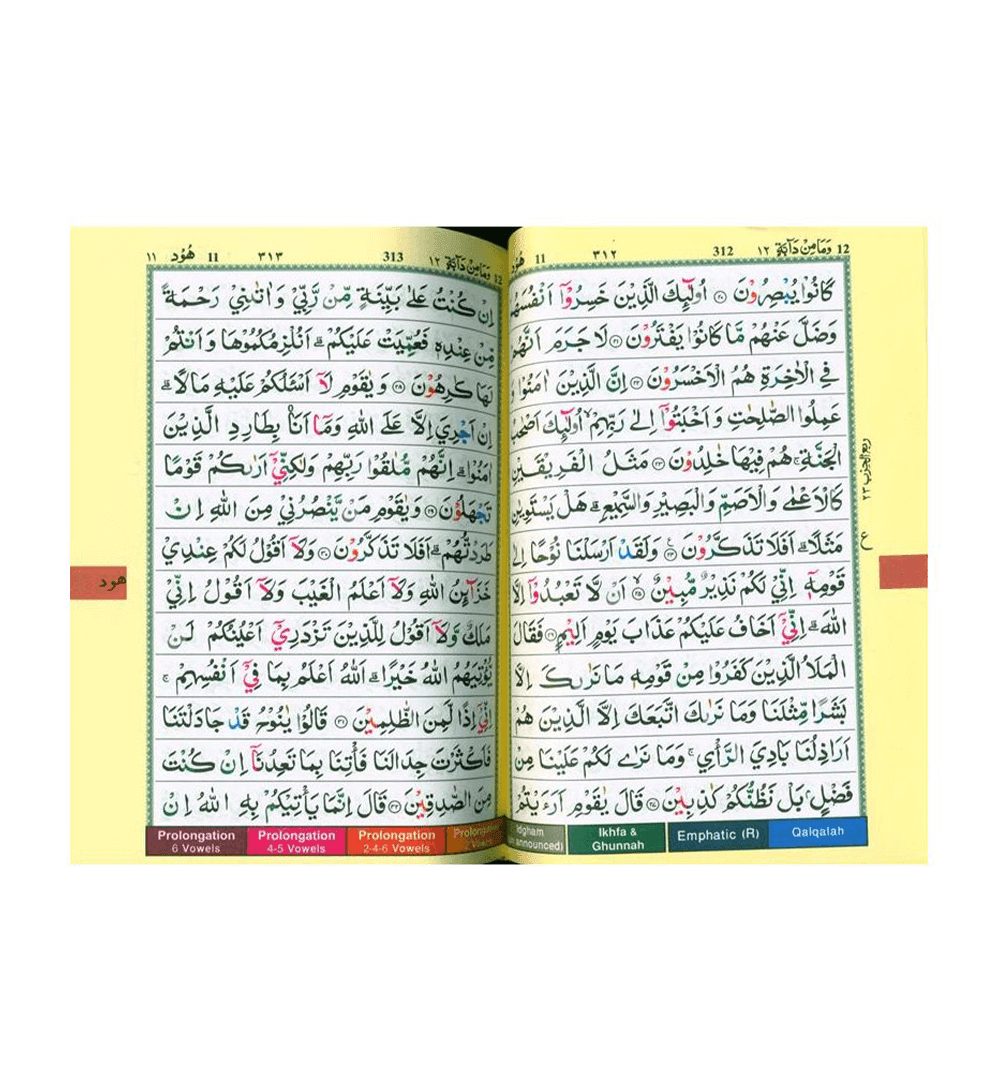 12 وَمَا مِنْ دَآبَّةٍ ١٢ 312 ٣١٢ 11 هُوْد
كَانُوْا يُبْصِرُوْنَ ﴿٢٠﴾ اُولٰٓئِكَ الَّذِيْنَ خَسِرُوْٓا اَنْفُسَهُمْ
وَضَلَّ عَنْهُمْ مَّا كَانُوْا يَفْتَرُوْنَ ﴿٢١﴾ لَا جَرَمَ اَنَّهُمْ
فِي الْاٰخِرَةِ هُمُ الْاَخْسَرُوْنَ ﴿٢٢﴾ اِنَّ الَّذِيْنَ اٰمَنُوْا وَ
عَمِلُوا الصّٰلِحٰتِ وَاَخْبَتُوْٓا اِلٰى رَبِّهِمْ ۙ اُولٰٓئِكَ اَصْحٰبُ
الْجَنَّةِ ۚ هُمْ فِيْهَا خٰلِدُوْنَ ﴿٢٣﴾ مَثَلُ الْفَرِيْقَيْنِ
كَالْاَعْمٰى وَالْاَصَمِّ وَالْبَصِيْرِ وَالسَّمِيْعِ ؕ هَلْ يَسْتَوِيٰنِ
مَثَلًا ؕ اَفَلَا تَذَكَّرُوْنَ ﴿٢٤﴾ وَلَقَدْ اَرْسَلْنَا نُوْحًا اِلٰى
قَوْمِهٖٓ اِنِّيْ لَكُمْ نَذِيْرٌ مُّبِيْنٌ ﴿٢٥﴾ اَنْ لَّا تَعْبُدُوْٓا اِلَّا
اللّٰهَ ؕ اِنِّيْٓ اَخَافُ عَلَيْكُمْ عَذَابَ يَوْمٍ اَلِيْمٍ ﴿٢٦﴾ فَقَالَ
الْمَلَاُ الَّذِيْنَ كَفَرُوْا مِنْ قَوْمِهٖ مَا نَرٰىكَ اِلَّا
بَشَرًا مِّثْلَنَا وَمَا نَرٰىكَ اتَّبَعَكَ اِلَّا الَّذِيْنَ هُمْ
اَرَاذِلُنَا بَادِيَ الرَّاْيِ ۚ وَمَا نَرٰى لَكُمْ عَلَيْنَا مِنْ
فَضْلٍۭ بَلْ نَظُنُّكُمْ كٰذِبِيْنَ ﴿٢٧﴾ قَالَ يٰقَوْمِ اَرَءَيْتُمْ
ربع الحزب ٢٣
ع
Qalqalah
Emphatic (R)
Ikhfa & Ghunnah
Idgham announced)
12 وَمَا مِنْ دَآبَّةٍ ١٢ 313 ٣١٣ 11 هُوْد ١١
اِنْ كُنْتُ عَلٰى بَيِّنَةٍ مِّنْ رَّبِّيْ وَاٰتٰىنِيْ رَحْمَةً
مِّنْ عِنْدِهٖ فَعُمِّيَتْ عَلَيْكُمْ ؕ اَنُلْزِمُكُمُوْهَا وَاَنْتُمْ
لَهَا كٰرِهُوْنَ ﴿٢٨﴾ وَيٰقَوْمِ لَآ اَسْـَٔلُكُمْ عَلَيْهِ مَالًا ؕ
اِنْ اَجْرِيَ اِلَّا عَلَى اللّٰهِ وَمَآ اَنَا بِطَارِدِ الَّذِيْنَ
اٰمَنُوْا ؕ اِنَّهُمْ مُّلٰقُوْا رَبِّهِمْ وَلٰكِنِّيْٓ اَرٰىكُمْ قَوْمًا
تَجْهَلُوْنَ ﴿٢٩﴾ وَيٰقَوْمِ مَنْ يَّنْصُرُنِيْ مِنَ اللّٰهِ اِنْ
طَرَدْتُّهُمْ ؕ اَفَلَا تَذَكَّرُوْنَ ﴿٣٠﴾ وَلَآ اَقُوْلُ لَكُمْ عِنْدِيْ
خَزَآئِنُ اللّٰهِ وَلَآ اَعْلَمُ الْغَيْبَ وَلَآ اَقُوْلُ اِنِّيْ
مَلَكٌ وَّلَآ اَقُوْلُ لِلَّذِيْنَ تَزْدَرِيْٓ اَعْيُنُكُمْ لَنْ
يُّؤْتِيَهُمُ اللّٰهُ خَيْرًا ؕ اَللّٰهُ اَعْلَمُ بِمَا فِيْٓ اَنْفُسِهِمْ ۚ
اِنِّيْٓ اِذًا لَّمِنَ الظّٰلِمِيْنَ ﴿٣١﴾ قَالُوْا يٰنُوْحُ قَدْ جَادَلْتَنَا
فَاَكْثَرْتَ جِدَالَنَا فَاْتِنَا بِمَا تَعِدُنَآ اِنْ كُنْتَ
مِنَ الصّٰدِقِيْنَ ﴿٣٢﴾ قَالَ اِنَّمَا يَاْتِيْكُمْ بِهِ اللّٰهُ اِنْ
هود
Prolongation 6 Vowels
Prolongation 4-5 Vowels
Prolongation 2-4-6 Vowels
Prolongation